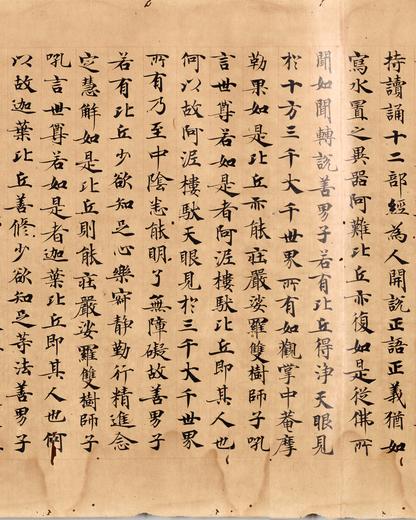 持讀誦十二部經為人開說正語正義猶如
寫水置之異器阿難比丘亦復如是從佛所
聞如聞轉說善男子若有比丘得淨天眼見
於十方三千大千世界所有如觀掌中菴摩
勒果如是比丘亦能莊嚴娑羅雙樹師子吼
言世尊若如是者阿泥樓馱比丘即其人也
何以故阿泥樓馱天眼見於三千大千世界
所有乃至中陰悉能明了無障礙故善男子
若有比丘少欲知足心樂寂靜勤行精進念
定慧解如是比丘則能莊嚴娑羅雙樹師子
吼言世尊若如是者迦葉比丘即其人也何
以故迦葉比丘善修少欲知足等法善男子